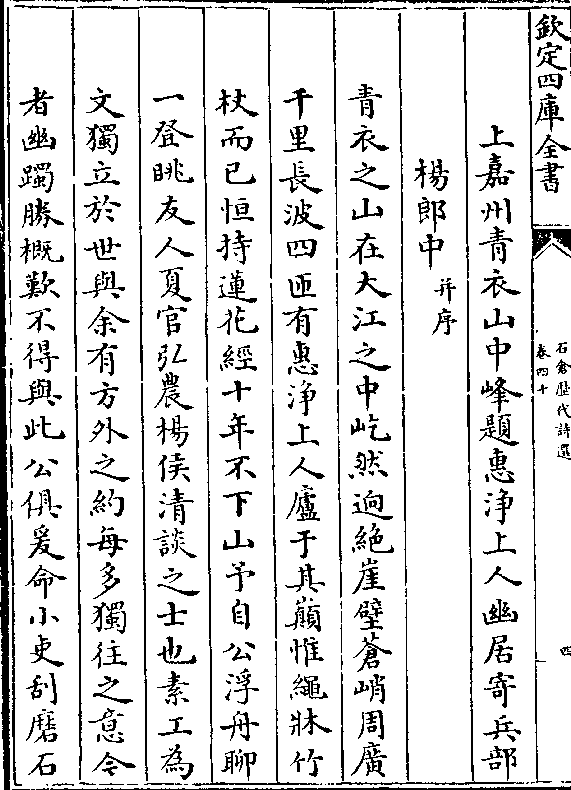 欽定四庫全書
石倉歷代詩選
卷四十
四
上嘉州青衣山中峰題惠淨上人幽居寄兵部
楊郎中并序
青衣之山在大江之中屹然逈絶崖壁蒼峭周廣
千里長波四匝有惠淨上人廬于其巔惟繩牀竹
杖而已恒持蓮花經十年不下山予自公浮舟聊
一登眺友人夏官弘農楊侯清談之士也素工為
文獨立於世與余有方外之約每多獨往之意令
者幽躅勝概歎不得與此公俱爰命小吏刮磨石